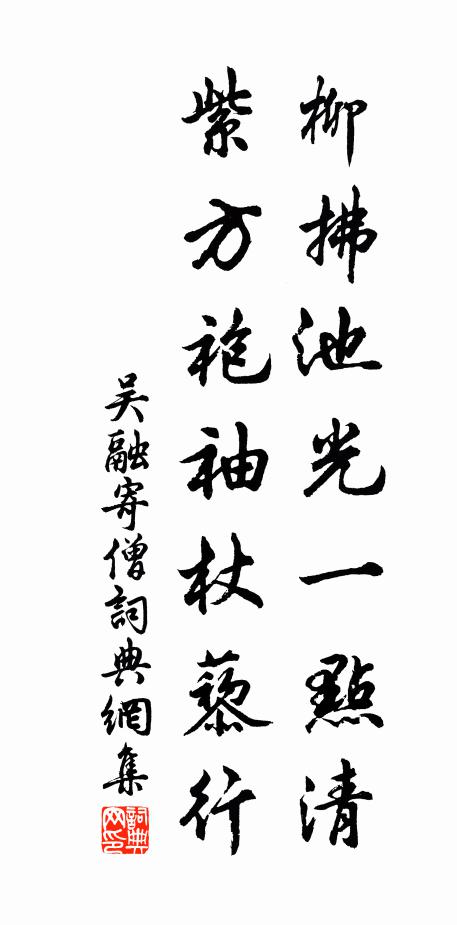 柳拂池光一點清
紫方袍袖杖藜行
吴融寄僧詞典網集
詞典網印